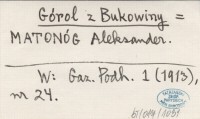 Góról z Bukowiny =
MATONÓG Aleksander.
W: Gaz. Podh. 1 (1913),
nr 24.